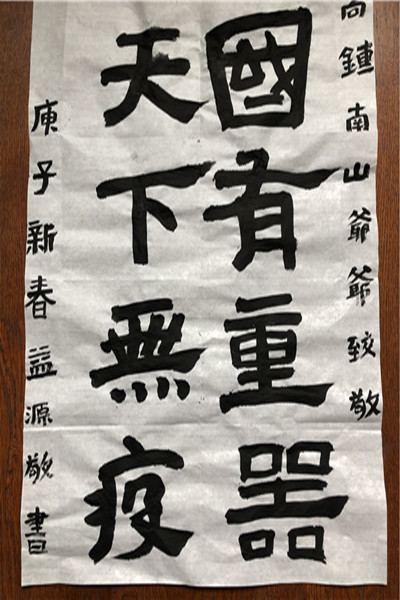 向鍾南山爺爺致敬
國有重器
天下無疫
庚子新春益源敬書